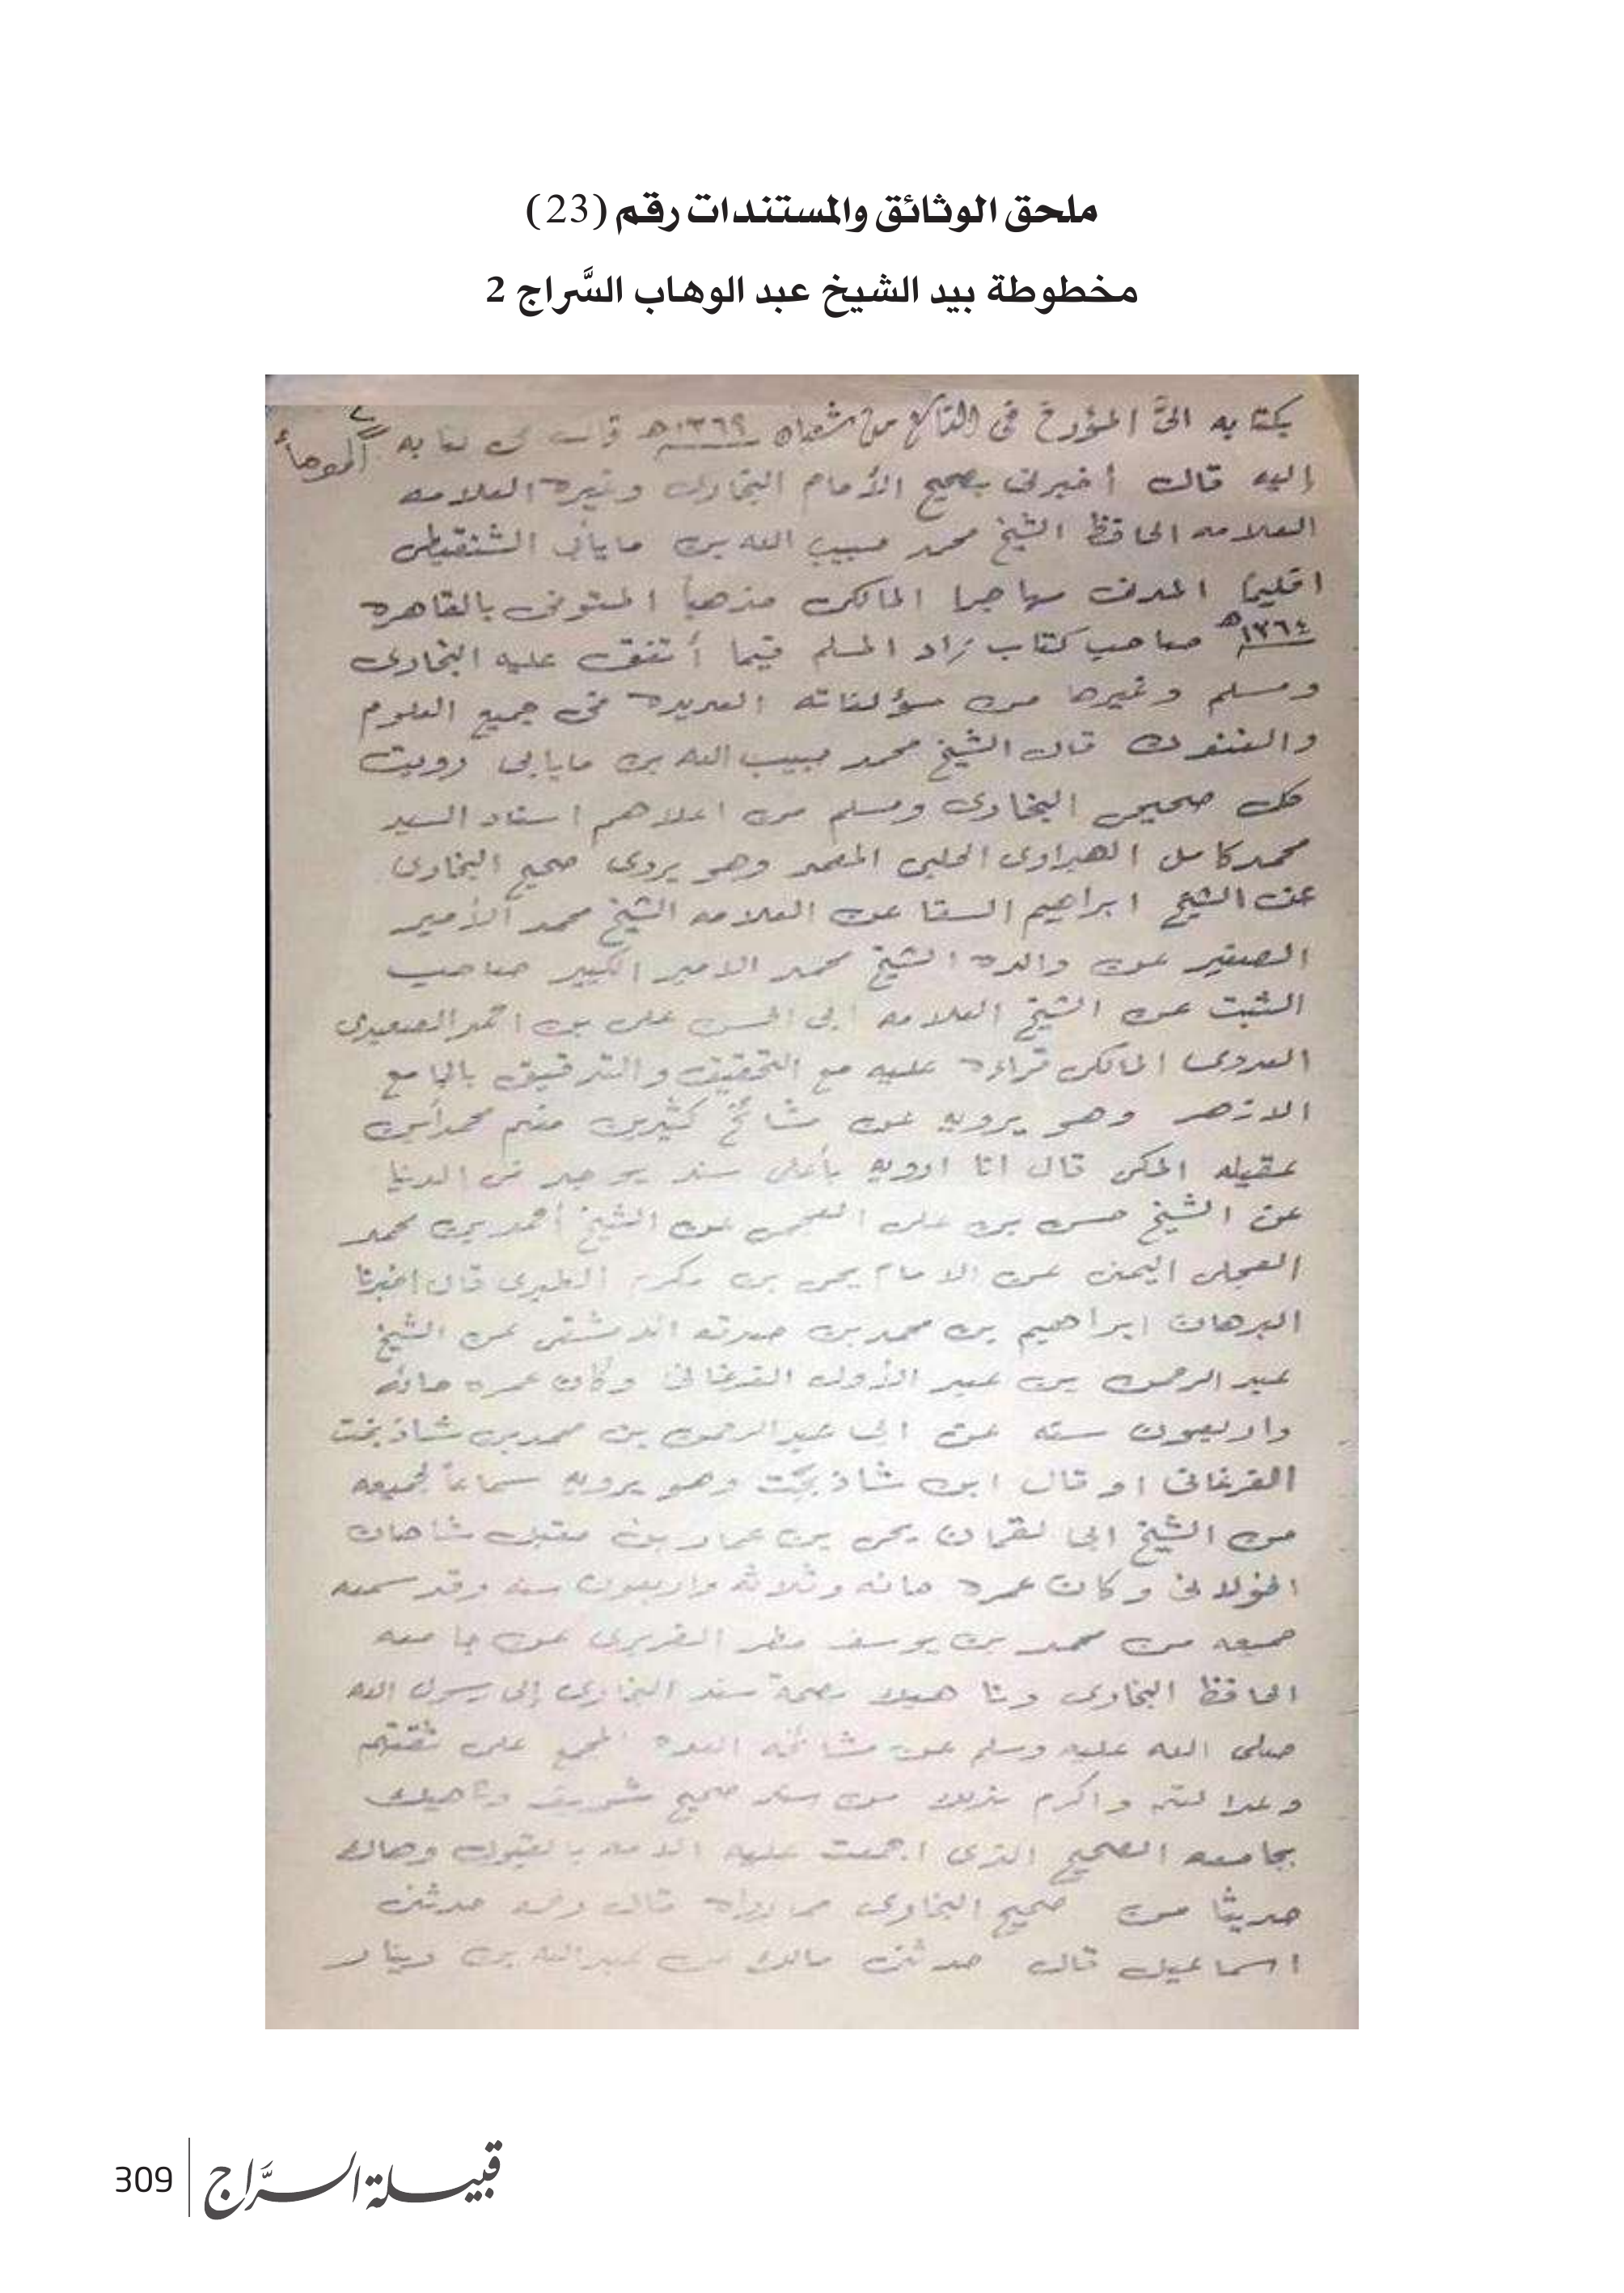 ملحق الوثائق والمستندات رقم (23)
مخطوطة بيد الشيخ عبد الوهاب السَّراج 2
بكتابه اليَّ المؤرخ في التاسع من شعبان ١٣٦٩هـ قال في كتابه الموما
إليه قال أخبرني بصحيح الأمام البخارى وغيره العلامه
العلامه الحافظ الشيخ محمد حبيب الله بن مايأبى الشنقيطى
اقليما المدنى مهاجرا المالكى مذهباً المتوفى بالقاهره
١٣٦٤هـ صاحب كتاب زاد المسلم فيما أتفق عليه البخارى
ومسلم وغيرها من مؤلفاته العديده في جميع العلوم
والفنون قال الشيخ محمد حبيب الله بن مايابى رويت
صحيحى البخارى ومسلم من اعلاهم اسناد السيد
محمد كامل الهبراوى الحلبى المعمر وهو يروى صحيح البخارى
عن الشيخ ابراهيم السقا عن العلامه الشيخ محمد الأمير
الصغير عن والده الشيخ محمد الامير الكبير صاحب
الثبت عن الشيخ العلامه ابى الحسن على بن احمد الصعيدى
العدوى المالكى قراءة عليه مع التحقيق والتدقيق بالجامع
الازهر وهو يرويه عن مشائخ كثيرين منهم محمد بن
عقيله المكى قال انا ارويه بأعلى سند يوجد فى الدنيا
عن الشيخ حسن بن على العجمى عن الشيخ أحمد بن محمد
العجلى اليمنى عن الامام يحى بن مكرم الطبرى قال اخبرنا
البرهان ابراهيم بن محمد بن صدقه الدمشقى عن الشيخ
عبد الرحمن بن عبد الأول الفرغانى وكان عمره مائه
واربعون سنه عن ابى عبد الرحمن بن محمد بن شاذ بخت
الفرغانى او قال ابن شاذ بخت وهو يرويه سماعاً لجميعه
من الشيخ ابى لقمان يحى بن عمار بن مقبل شاهان
الخولانى وكان عمره مائه وثلاثه واربعون سنه وقد سمعه
جميعه من محمد بن يوسف مطر الفربرى عن جامعه
الحافظ البخارى وناهيك بصحة سند البخارى إلى رسول الله
صلى الله عليه وسلم عن مشائخه المجمع على ثقتهم
وعدالتهم واكرم من سند صحيح شريف وناهيك
بجامعه الصحيح الذى اجمعت عليه الامه بالقبول وهاك
حديثا من صحيح البخارى مما رواه قال حدثنى
اسماعيل قال حدثنى مالك عن عبد الله بن دينار
309
قبيلة السرَّاج